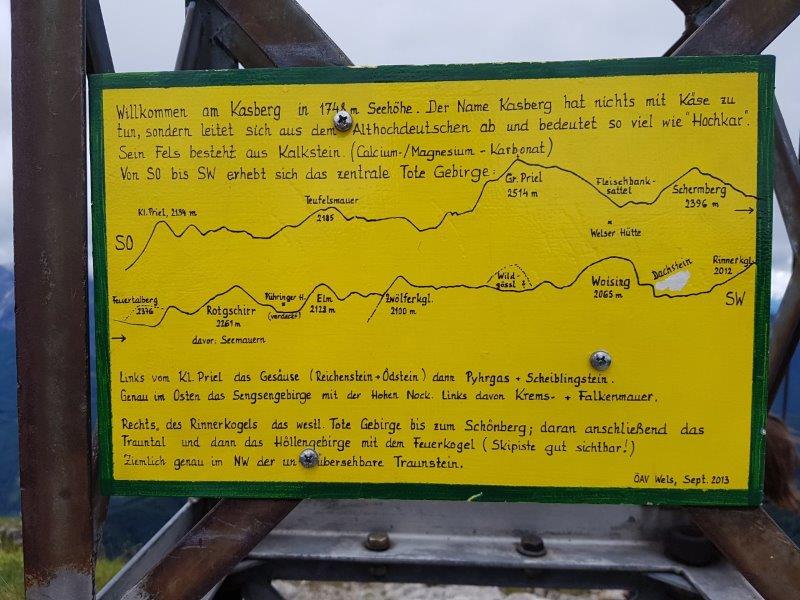 Willkommen am Kasberg in 1748 m Seehöhe. Der Name Kasberg hat nichts mit Käse zu
tun, sondern leitet sich aus dem Althochdeutschen ab und bedeutet so viel wie "Hochkar".
Sein Fels besteht aus Kalkstein. (Calcium-/Magnesium-Karbonat)
Von SO bis SW erhebt sich das zentrale Tote Gebirge:
Gr. Priel
2514 m
Fleischbank-
sattel
Schermberg
2396 m
Teufelsmauer
2185
Kl. Priel, 2134 m
Welser Hütte
SO
Feuertalberg
2376
Rotgschirr
2261 m
davor: Seemauern
Pühringer H.
(verdeckt)
Elm
2128 m
Zwölferkgl.
2100 m
Wild-
gössl
Woising
2065 m
Dachstein
Rinnerkgl.
2012
SW
Links vom Kl. Priel das Gesäuse (Reichenstein + Ödstein) dann Pyhrgas + Scheiblingstein.
Genau im Osten das Sengsengebirge mit der Hohen Nock. Links davon Krems- + Falkenmauer.
Rechts, des Rinnerkogels das westl. Tote Gebirge bis zum Schönberg; daran anschließend das
Trauntal und dann das Höllengebirge mit dem Feuerkogel (Skipiste gut sichtbar!)
Ziemlich genau im NW der unübersehbare Traunstein.
ÖAV Wels, Sept. 2013